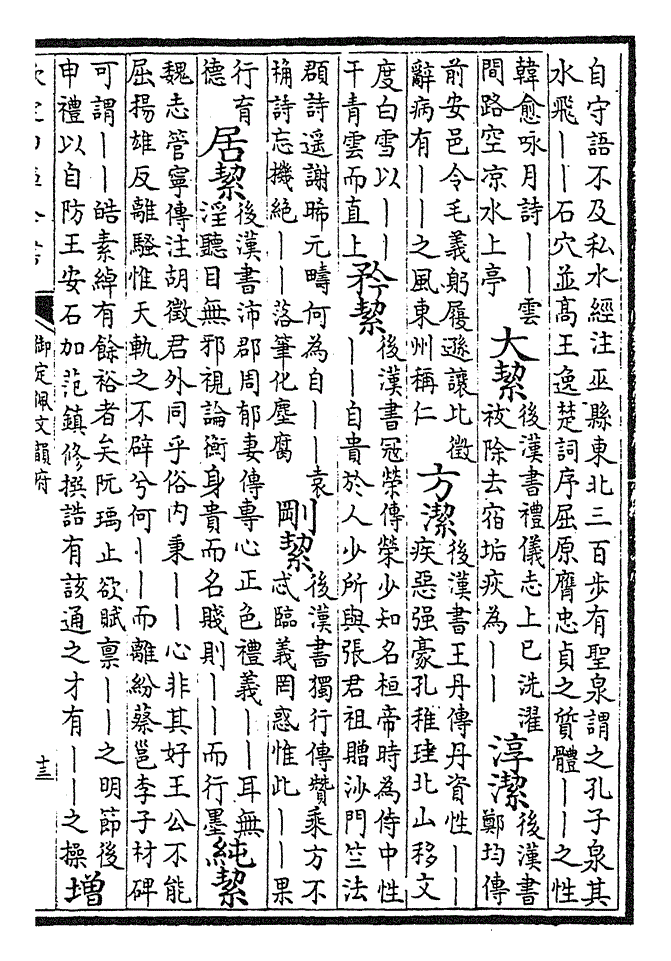 自守語不及私水經注巫縣東北三百步有聖泉謂之孔子泉其
水飛丨丨石穴並髙王逸楚詞序屈原膺忠貞之質體丨丨之性
韓愈咏月詩丨丨雲
間路空凉水上亭
大絜
後漢書禮儀志上巳洗濯
祓除去宿垢疢為丨丨
淳潔
後漢書
鄭均傳
前安邑令毛義躬履遜讓比徵
辭病有丨丨之風東州稱仁
方潔
後漢書王丹傳丹資性丨丨
疾惡强豪孔稚珪北山移文
度白雪以丨丨
干青雲而直上
矜絜
後漢書冦榮傳榮少知名桓帝時為侍中性
丨丨自貴於人少所與張君祖贈沙門竺法
頵詩遥謝晞元疇何為自丨丨袁
桷詩忘機絶丨丨落筆化塵腐
剛絜
後漢書獨行傳贊乘方不
忒臨義罔惑惟此丨丨果
行育
德
居絜
後漢書沛郡周郁妻傳專心正色禮義丨丨耳無
淫聽目無邪視論衡身貴而名賤則丨丨而行墨
純絜
魏志管寧傳注胡徵君外同乎俗内秉丨丨心非其好王公不能
屈揚雄反離騷惟天軌之不辟兮何丨丨而離紛蔡邕李子材碑
可謂丨丨皓素綽有餘裕者矣阮瑀止欲賦禀丨丨之明節後
申禮以自防王安石加范鎮修撰誥有該通之才有丨丨之操
增
御定佩文韻府
十三